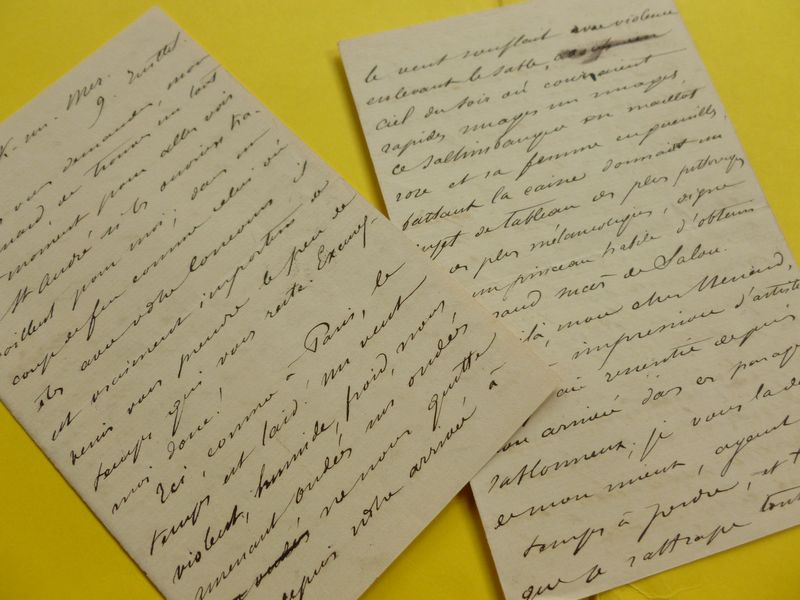 sur. Mer.
9. Juillet.
vous demander, mon
nard, de trouver un tout
moment pour aller voir
St André si ils envoient tra-
vaillent pour moi; dans un
coup de feu comme celui où
ils avec votre concours il
est vraiment important de
venir vous prendre le peu de
temps qui vous reste. Excusez-
moi donc!
Ici, comme à Paris, le
temps est laid. Un vent
violent, humide, froid, nous
amenant ondées sur ondées
ne nous quitte
depuis notre arrivée à
le vent soufflait avec violence
enlevant le sable,
ciel du soir où couraient
rapides nuages sur nuages,
ce saltimbanque en maillot
rose et sa femme en guenilles
battant la caisse donnait un
sujet de tableau des plus pittoresques
des plus mélancoliques, digne
un pinceau habile d'obtenir
grand succès de Salon.
là, mon cher Menard,
impression d'artiste
ai ressentie depuis
mon arrivée dans ces parages
sablonneux. je vous la de
de mon mieux, ayant
temps à perdre, et
que je rattrape tout